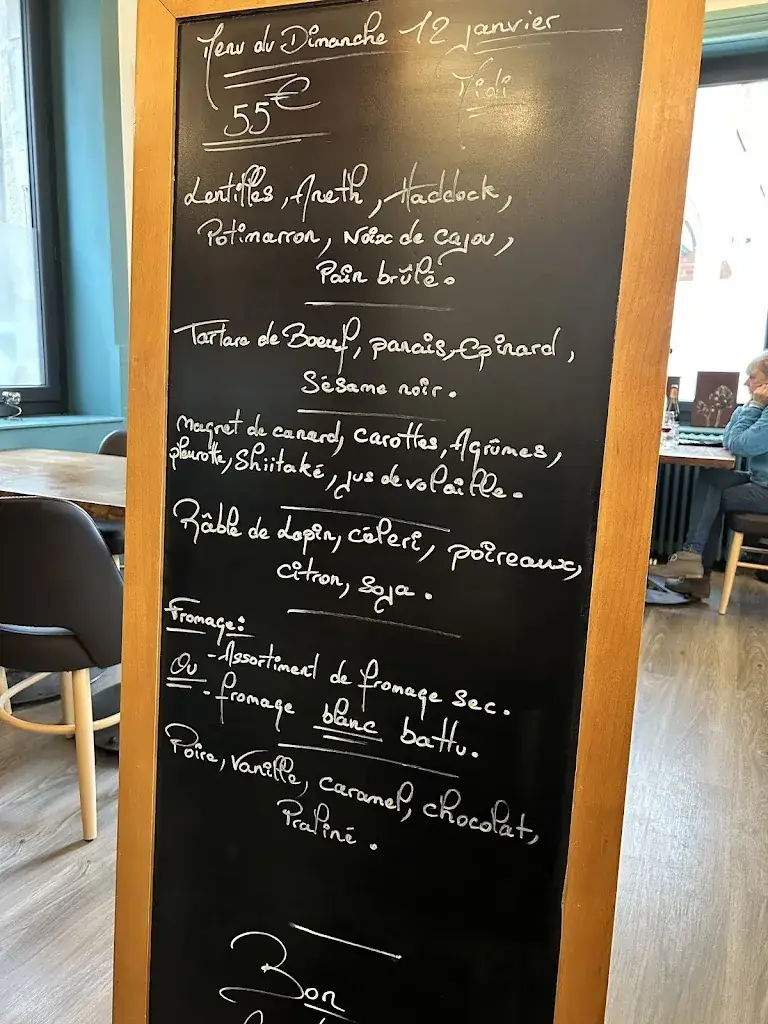 Menu du Dimanche 12 janvier
55€ Midi
Lentilles, Aneth, Haddock,
Potimarron, Noix de cajou,
Pain brûlé.
Tartare de Boeuf, panais, Epinard,
Sésame noir.
Magret de canard, carottes, Agrûmes,
pleurotte, Shiitaké, jus de volaille.
Râble de Lapin, céleri, poireaux,
citron, soja.
Fromage:
- Assortiment de fromage sec.
Ou - fromage blanc battu.
Poire, Vanille, caramel, chocolat,
Praliné.
Bon